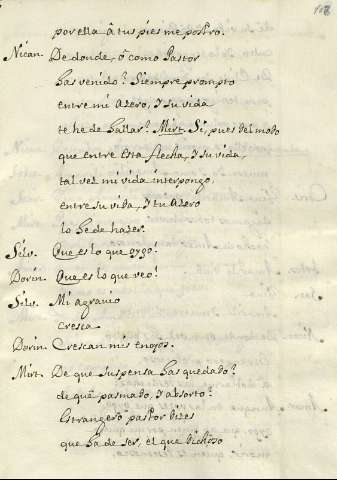 108
por ella â tus pies me postro.
Nican. De donde, ô como Pastor
has venido? Siempre prompto
entre mi azero, y su vida
te he de hallar? Mirt. Si, pues del modo
que entre esta flecha, y su vida,
tal vez mi vida interpongo,
entre su vida, y tu azero
lo he de hazer.
Silv. Que es lo que oygo!
Dorin. Que es lo que veo!
Silv. Mi agravio
cresca.
Dorin. Crescan mis enojos.
Mirt. De que suspensa has quedado?
de què pasmado, y absorto?
Estrangero pastor dizes
que ha de ser, el que dichoso